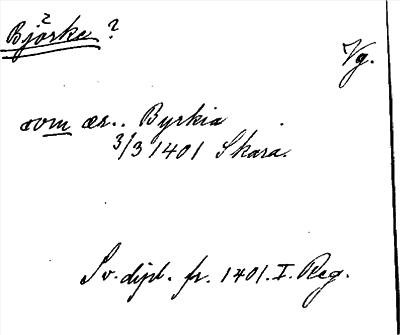 Björke?
?
Vg.
som är.. Byrkia
3/3 1401 Skara.
Sv. dipl. fr. 1401. I. Reg.